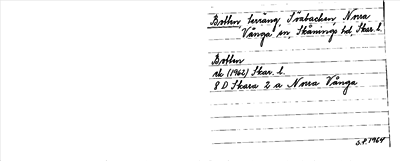 Botten terräng, Fåxbacken, Norra
Vånga sn, Skånings hd, Skar. l.
Botten
rk (1962) Skar. l.
8 D Skara 2 a Norra Vånga
S.F. 1964